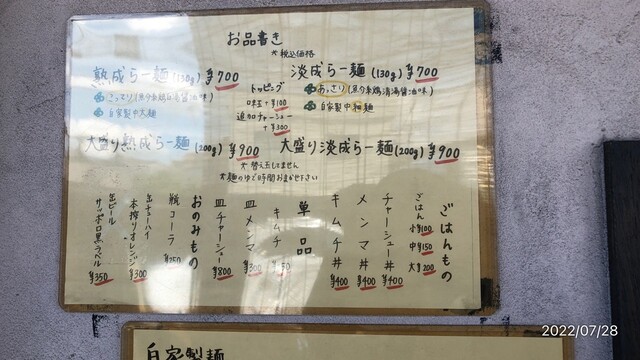 お品書き
※税込価格
熟成らー麺(130g) ¥700
こってり(魚介系鶏白湯醤油味)
自家製中太麺
トッピング
味玉+¥100
追加チャーシュー
+¥300
淡成らー麺(130g) ¥700
あっさり(魚介系鶏清湯醤油味)
自家製中細麺
大盛り熟成らー麺(200g) ¥900
大盛り淡成らー麺(200g) ¥900
※替え玉してません
※麺のゆで時間おまかせ下さい
ごはんもの
ごはん 小¥100
中¥150
大¥200
チャーシュー丼 ¥400
メンマ丼 ¥400
キムチ丼 ¥400
単品
キムチ
皿メンマ ¥300
皿チャーシュー ¥800
おのみもの
瓶コーラ ¥250
缶チューハイ
本搾りオレンジ ¥300
缶ビール
サッポロ黒ラベル ¥350
自家製麺
2022/07/28